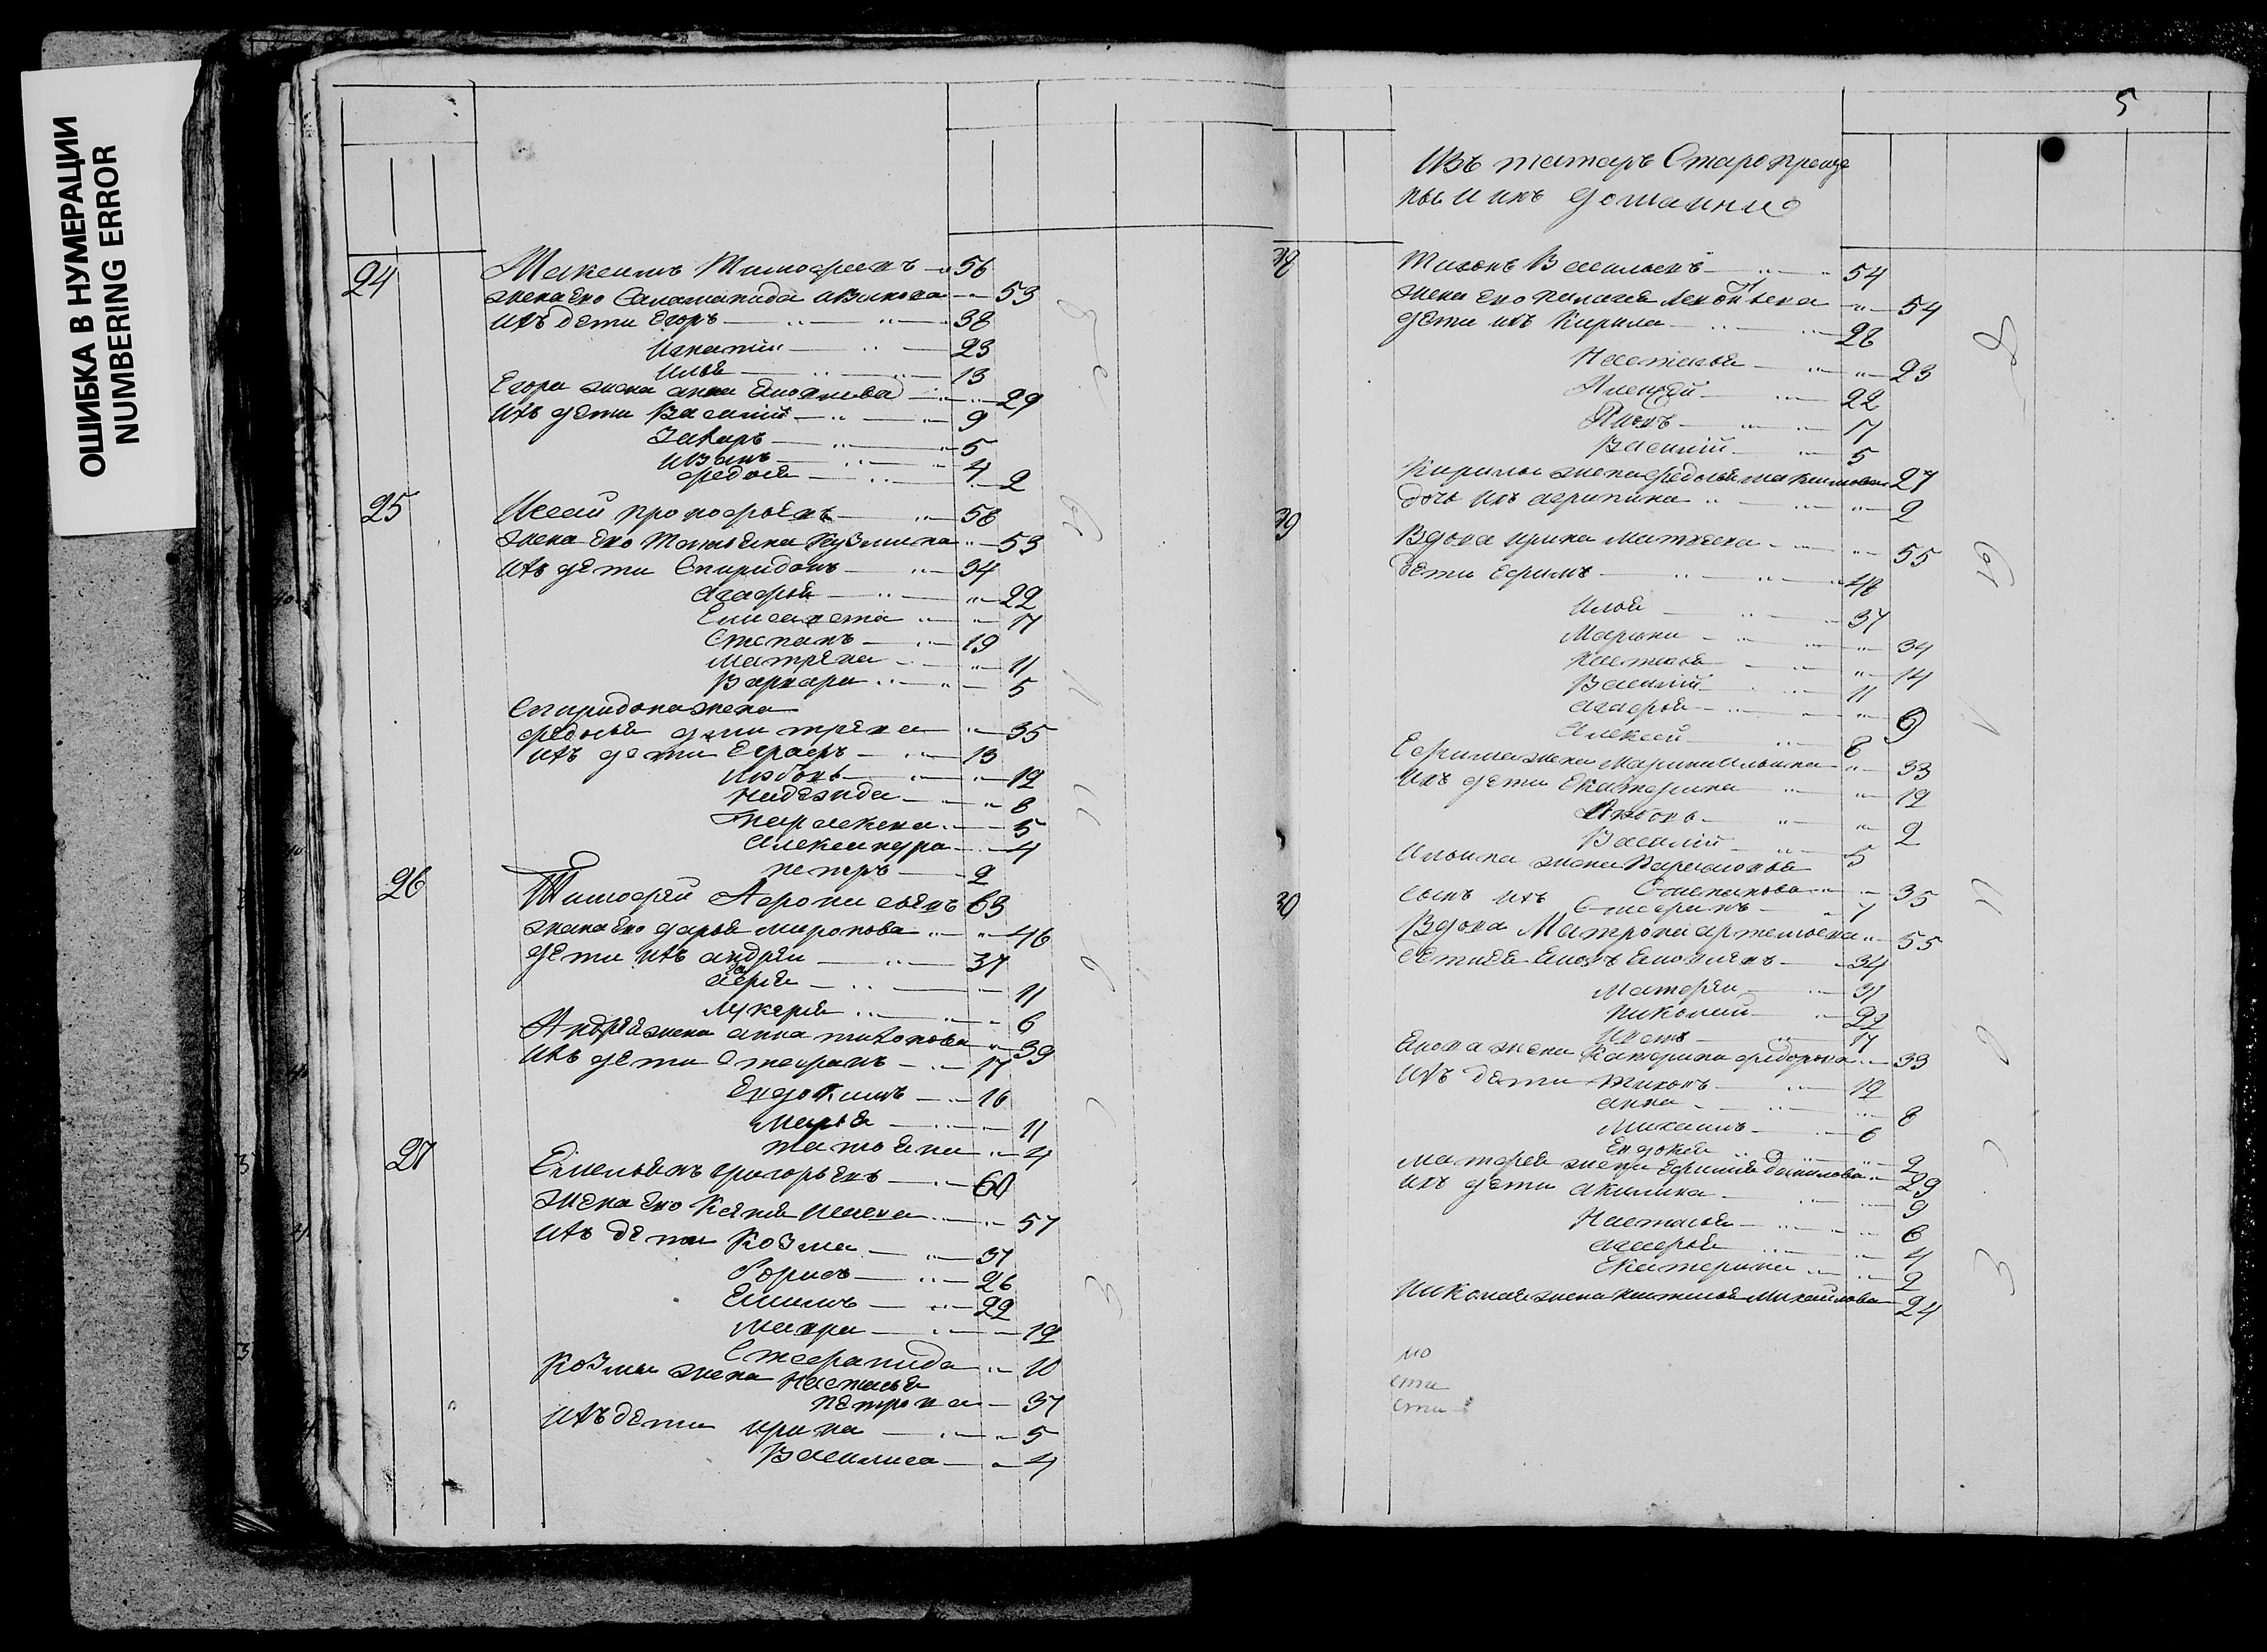 ОШИБКА В НУМЕРАЦИИ
NUMBERING ERROR
24 Максимъ Тимофеевъ 56
жена ево Саламанида 53
ихъ дети Егоръ 38
Игнатий 23
Илья 13
Егора жена анна 29
ихъ дети Василий 9
Захаръ 5
Иванъ 4
федосья 2
25 Исай прокофьевъ 56
жена ево Татьяна Кузмина 53
ихъ дети Спиридонъ 34
агафья 22
Елисавета 17
Степанъ 19
Матрена 11
Варвара 5
Спиридона жена
федосья дмитрева 35
ихъ дети Еграфъ 13
Любовь 12
Надежда 8
Параскева 5
Александра 4
петръ 2
26 Тимофей 63
жена ево дарья миронова 46
дети ихъ андрей 37
11
Лукерья 6
Андрея жена анна тихонова 39
ихъ дети Стефанъ 17
Евдокимъ 16
Марья 11
татьяна 4
27 Емельянъ григорьевъ 60
жена ево Ксенья 57
ихъ дети Козма 37
Борисъ 26
22
Мавра 12
Стефанида 10
Козмы жена Настасья
петрова 37
ихъ дети ирина 5
Василиса 4
5
Изъ татаръ Старокреще
ны и ихъ домашние
Тихонъ Васильевъ 54
жена ево палагея 54
дети ихъ Кирила 28
Настасья 23
Алексей 22
17
Василий 5
Кирилы жена федосья максимова 27
дочь ихъ агрипина 2
29 Вдова ирина матвеева 55
дети ефимъ 48
Илья 37
Марина 34
настасья 14
Василий 11
агафья 9
алексей 8
Ефима жена Марина ильина 33
ихъ дети Екатерина 12
Любовь 2
Василий 5
Ильина жена
Степанова 35
сынъ ихъ Стефанъ 7
30 Вдова Матрона артемьева 55
34
Матфей 31
николай 22
17
жена Катерина федорова 33
ихъ дети тихонъ 12
анна 8
Михаилъ 6
Евдокея 2
матфея жена Ефимия данилова 29
ихъ дети акилина 9
Настасья 6
агафья 4
Екатерина 2
николая жена настасья Михайлова 24